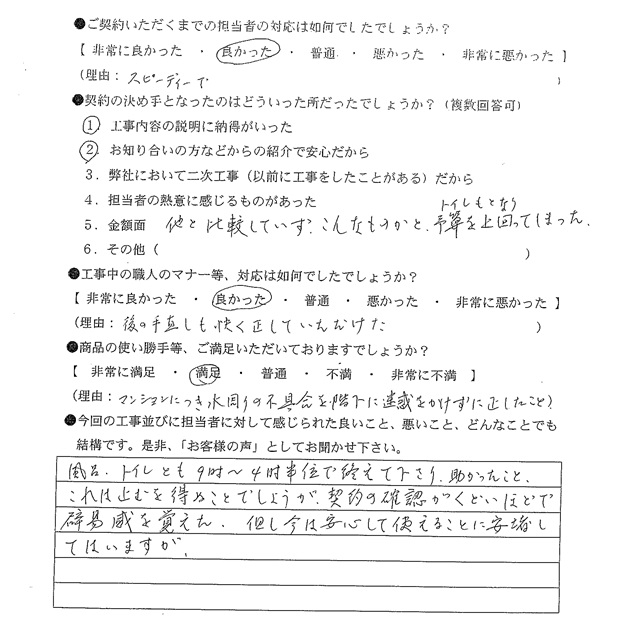 ●ご契約いただくまでの担当者の対応は如何でしたでしょうか？
【 非常に良かった ・ 良かった ・ 普通 ・ 悪かった ・ 非常に悪かった 】
（理由：スピーディーで ）
●契約の決め手となったのはどういった所だったでしょうか？（複数回答可）
1．工事内容の説明に納得がいった
2．お知り合いの方などからの紹介で安心だから
3．弊社において二次工事（以前に工事をしたことがある）だから
4．担当者の熱意に感じるものがあった
トイレもとなり
5．金額面 他と比較していず、こんなものかと、予算を上回ってしまった。
6．その他（ ）
●工事中の職人のマナー等、対応は如何でしたでしょうか？
【 非常に良かった ・ 良かった ・ 普通 ・ 悪かった ・ 非常に悪かった 】
（理由：後の手直しも快く正していただけた ）
●商品の使い勝手等、ご満足いただいておりますでしょうか？
【 非常に満足 ・ 満足 ・ 普通 ・ 不満 ・ 非常に不満 】
（理由：マンションにつき水回りの不具合を階下に迷惑をかけずに正したこと）
●今回の工事並びに担当者に対して感じられた良いこと、悪いこと、どんなことでも
結構です。是非、「お客様の声」としてお聞かせ下さい。
風呂、トイレとも9時〜4時半位で終えて下さり、助かったこと、
これは止むを得ぬことでしょうが、契約の確認がくどいほどで
辟易感を覚えた。但し今は安心して使えることに安堵し
てはいますが、